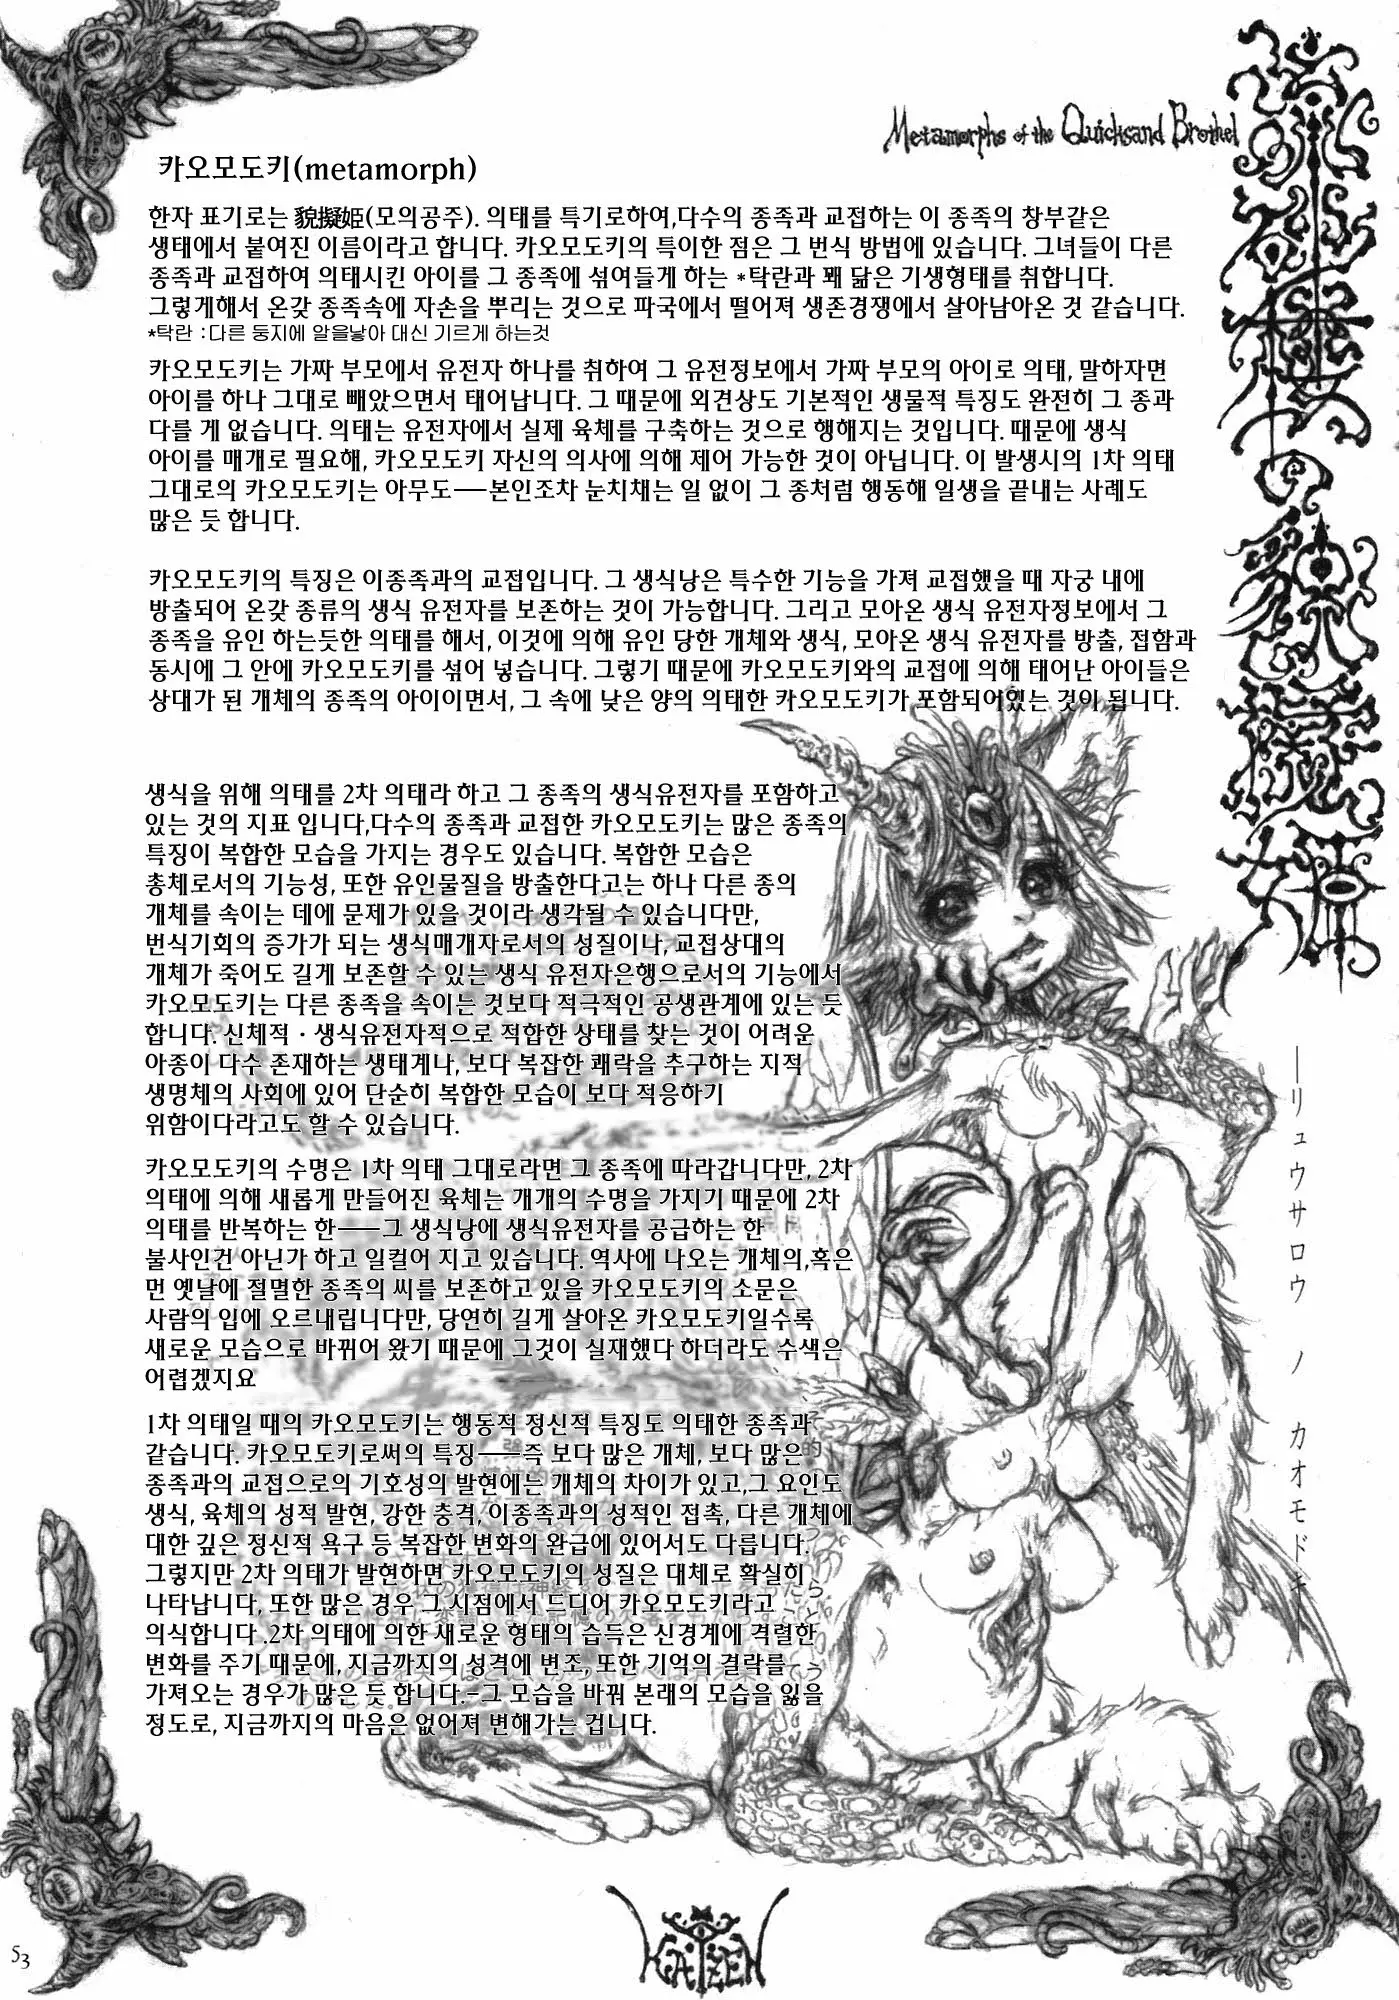 Metamorphs of the Quicksand Brothel
카오모도키(metamorph)
한자 표기로는 貌擬姫(모의공주). 의태를 특기로하여,다수의 종족과 교접하는 이 종족의 창부같은
생태에서 붙여진 이름이라고 합니다. 카오모도키의 특이한 점은 그 번식 방법에 있습니다. 그녀들이 다른
종족과 교접하여 의태시킨 아이를 그 종족에 섞여들게 하는 *탁란과 꽤 닮은 기생형태를 취합니다.
그렇게해서 온갖 종족속에 자손을 뿌리는 것으로 파국에서 떨어져 생존경쟁에서 살아남아온 것 같습니다.
*탁란 :다른 둥지에 알을낳아 대신 기르게 하는것
카오모도키는 가짜 부모에서 유전자 하나를 취하여 그 유전정보에서 가짜 부모의 아이로 의태, 말하자면
아이를 하나 그대로 빼았으면서 태어납니다. 그 때문에 외견상도 기본적인 생물적 특징도 완전히 그 종과
다를 게 없습니다. 의태는 유전자에서 실제 육체를 구축하는 것으로 행해지는 것입니다. 때문에 생식
아이를 매개로 필요해, 카오모도키 자신의 의사에 의해 제어 가능한 것이 아닙니다. 이 발생시의 1차 의태
그대로의 카오모도키는 아무도――본인조차 눈치채는 일 없이 그 종처럼 행동해 일생을 끝내는 사례도
많은 듯 합니다.
카오모도키의 특징은 이종족과의 교접입니다. 그 생식낭은 특수한 기능을 가져 교접했을 때 자궁 내에
방출되어 온갖 종류의 생식 유전자를 보존하는 것이 가능합니다. 그리고 모아온 생식 유전자정보에서 그
종족을 유인 하는듯한 의태를 해서, 이것에 의해 유인 당한 개체와 생식, 모아온 생식 유전자를 방출, 접함과
동시에 그 안에 카오모도키를 섞어 넣습니다. 그렇기 때문에 카오모도키와의 교접에 의해 태어난 아이들은
상대가 된 개체의 종족의 아이이면서, 그 속에 낮은 양의 의태한 카오모도키가 포함되어있는 것이 됩니다.
생식을 위해 의태를 2차 의태라 하고 그 종족의 생식유전자를 포함하고
있는 것의 지표 입니다,다수의 종족과 교접한 카오모도키는 많은 종족의
특징이 복합한 모습을 가지는 경우도 있습니다. 복합한 모습은
총체로서의 기능성, 또한 유인물질을 방출한다고는 하나 다른 종의
개체를 속이는 데에 문제가 있을 것이라 생각될 수 있습니다만,
번식기회의 증가가 되는 생식매개자로서의 성질이나, 교접상대의
개체가 죽어도 길게 보존할 수 있는 생식 유전자은행으로서의 기능에서
카오모도키는 다른 종족을 속이는 것보다 적극적인 공생관계에 있는 듯
합니다. 신체적 · 생식유전자적으로 적합한 상태를 찾는 것이 어려운
아종이 다수 존재하는 생태계나, 보다 복잡한 쾌락을 추구하는 지적
생명체의 사회에 있어 단순히 복합한 모습이 보다 적응하기
위함이다라고도 할 수 있습니다.
카오모도키의 수명은 1차 의태 그대로라면 그 종족에 따라갑니다만, 2차
의태에 의해 새롭게 만들어진 육체는 개개의 수명을 가지기 때문에 2차
의태를 반복하는 한――그 생식낭에 생식유전자를 공급하는 한
불사인건 아닌가 하고 일컬어 지고 있습니다. 역사에 나오는 개체의,혹은
먼 옛날에 절멸한 종족의 씨를 보존하고 있을 카오모도키의 소문은
사람의 입에 오르내립니다만, 당연히 길게 살아온 카오모도키일수록
새로운 모습으로 바뀌어 왔기 때문에 그것이 실재했다 하더라도 수색은
어렵겠지요
1차 의태일 때의 카오모도키는 행동적 정신적 특징도 의태한 종족과
같습니다. 카오모도키로써의 특징――즉 보다 많은 개체, 보다 많은
종족과의 교접으로의 기호성의 발현에는 개체의 차이가 있고,그 요인도
생식, 육체의 성적 발현, 강한 충격, 이종족과의 성적인 접촉, 다른 개체에
대한 깊은 정신적 욕구 등 복잡한 변화의 완급에 있어서도 다릅니다.
그렇지만 2차 의태가 발현하면 카오모도키의 성질은 대체로 확실히
나타납니다, 또한 많은 경우 그 시점에서 드디어 카오모도키라고
의식합니다 .2차 의태에 의한 새로운 형태의 습득은 신경계에 격렬한
변화를 주기 때문에, 지금까지의 성격에 변조, 또한 기억의 결락를
가져오는 경우가 많은 듯 합니다.-그 모습을 바꿔 본래의 모습을 잃을
정도로, 지금까지의 마음은 없어져 변해가는 겁니다.
―リュウサロウノ カオモドキ
53